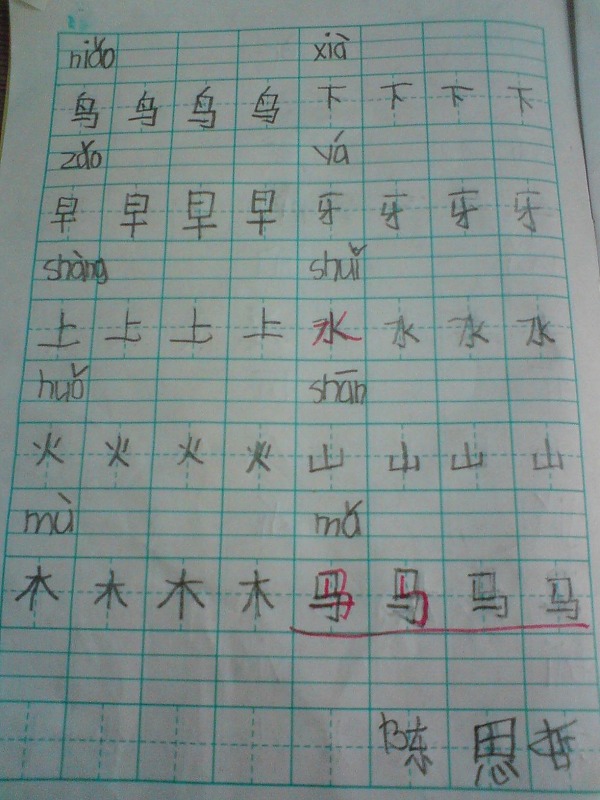 niǎo xià
鸟 鸟 鸟 鸟 下 下 下 下
zǎo yá
早 早 早 早 牙 牙 牙 牙
shàng shuǐ
上 上 上 上 水 水 水 水
huǒ shān
火 火 火 火 山 山 山 山
mù mǎ
木 木 木 木 马 马 马 马
陈思哲